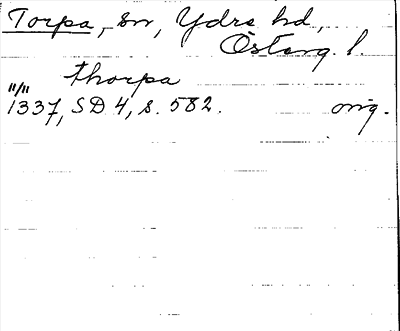 Torpa, sn, Ydre hd,
Österg. l.
Thorpa
11/11
1337, SD 4, s. 582. orig.